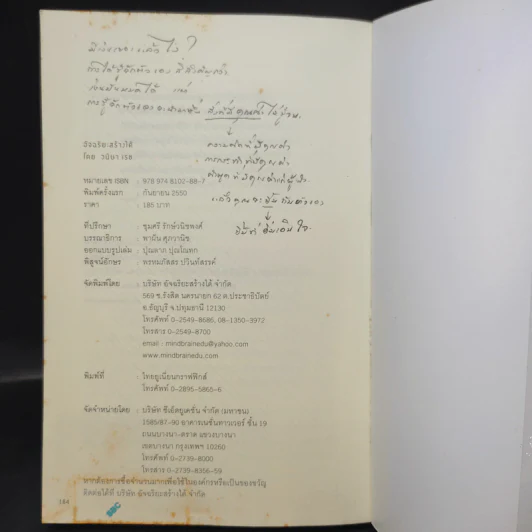 มีเงินทองแล้วไง ?
การได้รู้จักตัวเอง
เงินมันหมดได้ แต่
การรู้จักตัวเองจะนำมาซึ่ง สิ่งที่มีคุณค่า
↓
ความคิดที่มีคุณค่า
การกระทำที่มีคุณค่า
คำพูดที่มีคุณค่า
แล้วคุณจะ
↓
อัจฉริยะสร้างได้
โดย วนิษา เรซ
หมายเลข ISBN : 978 974 8102-88-7
พิมพ์ครั้งแรก : กันยายน 2550
ราคา : 185 บาท
ที่ปรึกษา : ชุมศรี รักษ์วนิชพงศ์
บรรณาธิการ : พานิน ศุภวานิช
ออกแบบรูปเล่ม :
พิสูจน์อักษร :
จัดพิมพ์โดย : บริษัท อัจฉริยะสร้างได้ จำกัด
569 ซ.รังสิต นครนายก 62 ต.ประชาธิปัตย์
อ.ธัญบุรี จ.ปทุมธานี 12130
โทรศัพท์ 0-2549-8686, 08-1350-3972
โทรสาร 0-2549-8700
email : mindbrainedu@yahoo.com
www.mindbrainedu.com
พิมพ์ที่ : ไทยยูเนี่ยนกราฟฟิกส์
โทรศัพท์ 0-2895-5865-6
จัดจำหน่ายโดย : บริษัท ซีเอ็ดยูเคชั่น จำกัด (มหาชน)
1585/87-90 อาคารเนชั่นทาวเวอร์ ชั้น 19
ถนนบางนา-ตราด แขวงบางนา
เขตบางนา กรุงเทพฯ 10260
โทรศัพท์ 0-2739-8000
โทรสาร 0-2739-8356-59
หากต้องการซื้อจำนวนมากเพื่อใช้ในองค์กรหรือเป็นของขวัญ
ติดต่อได้ที่ บริษัท อัจฉริยะสร้างได้ จำกัด
184